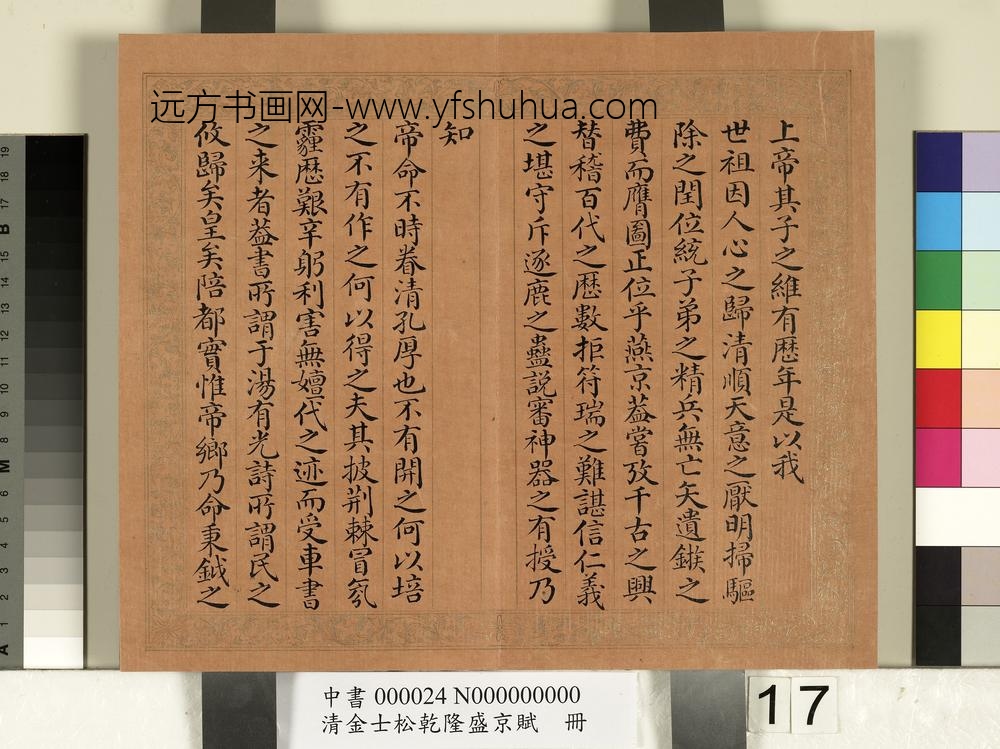 远方书画网-www.yfshuhua.com
上帝其子之維有歷年是以我
世祖因人心之歸清順天意之厭明掃驅
除之閏位統子弟之精兵無亡矢遺鏃之
費而膺圖正位乎燕京葢嘗攷千古之興
替稽百代之歷數拒符瑞之難諶信仁義
之堪守斥逐鹿之蠱説審神器之有授乃
知
帝命不時眷清孔厚也不有開之何以培
之不有作之何以得之夫其披荆棘冒氛
霾歷艱辛躬利害無嬗代之迹而受車書
之来者葢書所謂于湯有光詩所謂民之
攸歸矣皇矣陪都實惟帝鄉乃命秉鉞之
中書 000024 N000000000
清金士松乾隆盛京賦 冊
17
A 1 2 3 4 5 6 M 8 9 10 11 12 13 14 15 B 17 18 19